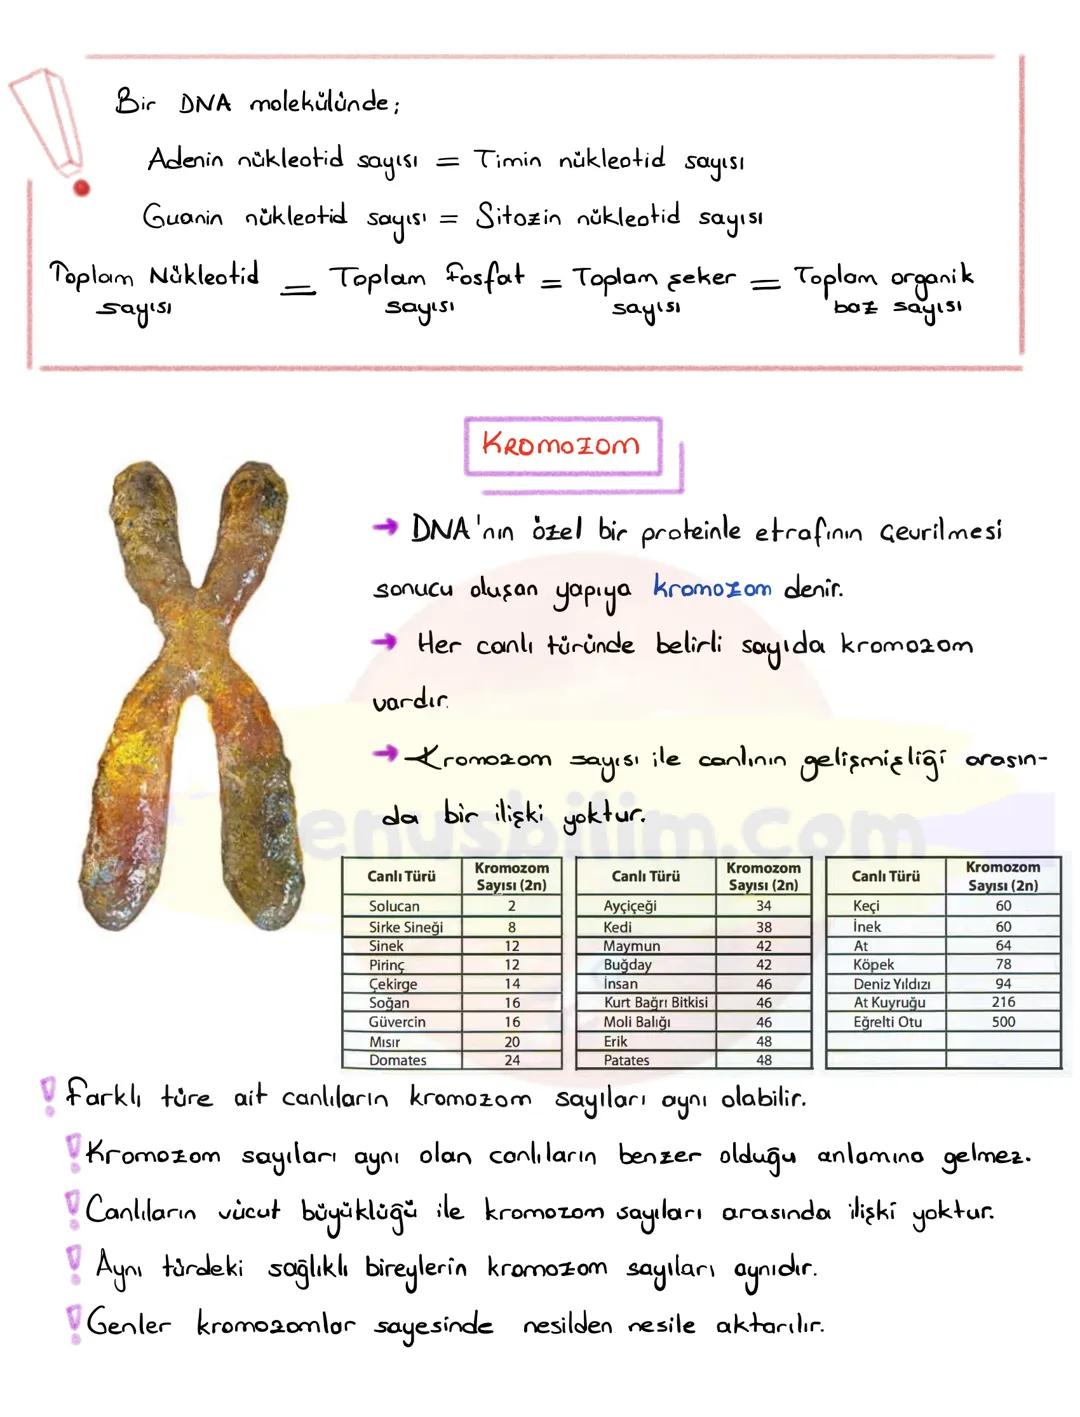 Bir DNA molekülünde;
Adenin nükleotid sayısı = Timin nükleotid sayısı
Guanin nükleotid sayısı = Sitozin nükleotid sayısı
Toplam Nükleotid sayısı = Toplam fosfat sayısı = Toplam şeker sayısı = Toplam organik baz sayısı
Kromozom
→ DNA'nın özel bir proteinle etrafının çevrilmesi
sonucu oluşan yapıya kromozom denir.
→ Her canlı türünde belirli sayıda kromozom
vardır.
→ Kromozom sayısı ile canlının gelişmişliği arasın-
da bir ilişki yoktur.
enusbilim.com
Canlı Türü Kromozom Sayısı (2n)
Solucan 2
Sirke Sineği 8
Sinek 12
Pirinç 12
Çekirge 14
Soğan 16
Güvercin 16
Mısır 20
Domates 24
Canlı Türü Kromozom Sayısı (2n)
Ayçiçeği 34
Kedi 38
Maymun 42
Buğday 42
İnsan 46
Kurt Bağrı Bitkisi 46
Moli Balığı 46
Erik 48
Patates 48
Canlı Türü Kromozom Sayısı (2n)
Keçi 60
İnek 60
At 64
Köpek 78
Deniz Yıldızı 94
At Kuyruğu 216
Eğrelti Otu 500
! Farklı türe ait canlıların kromozom sayıları aynı olabilir.
! Kromozom sayıları aynı olan canlıların benzer olduğu anlamına gelmez.
! Canlıların vücut büyüklüğü ile kromozom sayıları arasında ilişki yoktur.
! Aynı türdeki sağlıklı bireylerin kromozom sayıları aynıdır.
! Genler kromozomlar sayesinde nesilden nesile aktarılır.